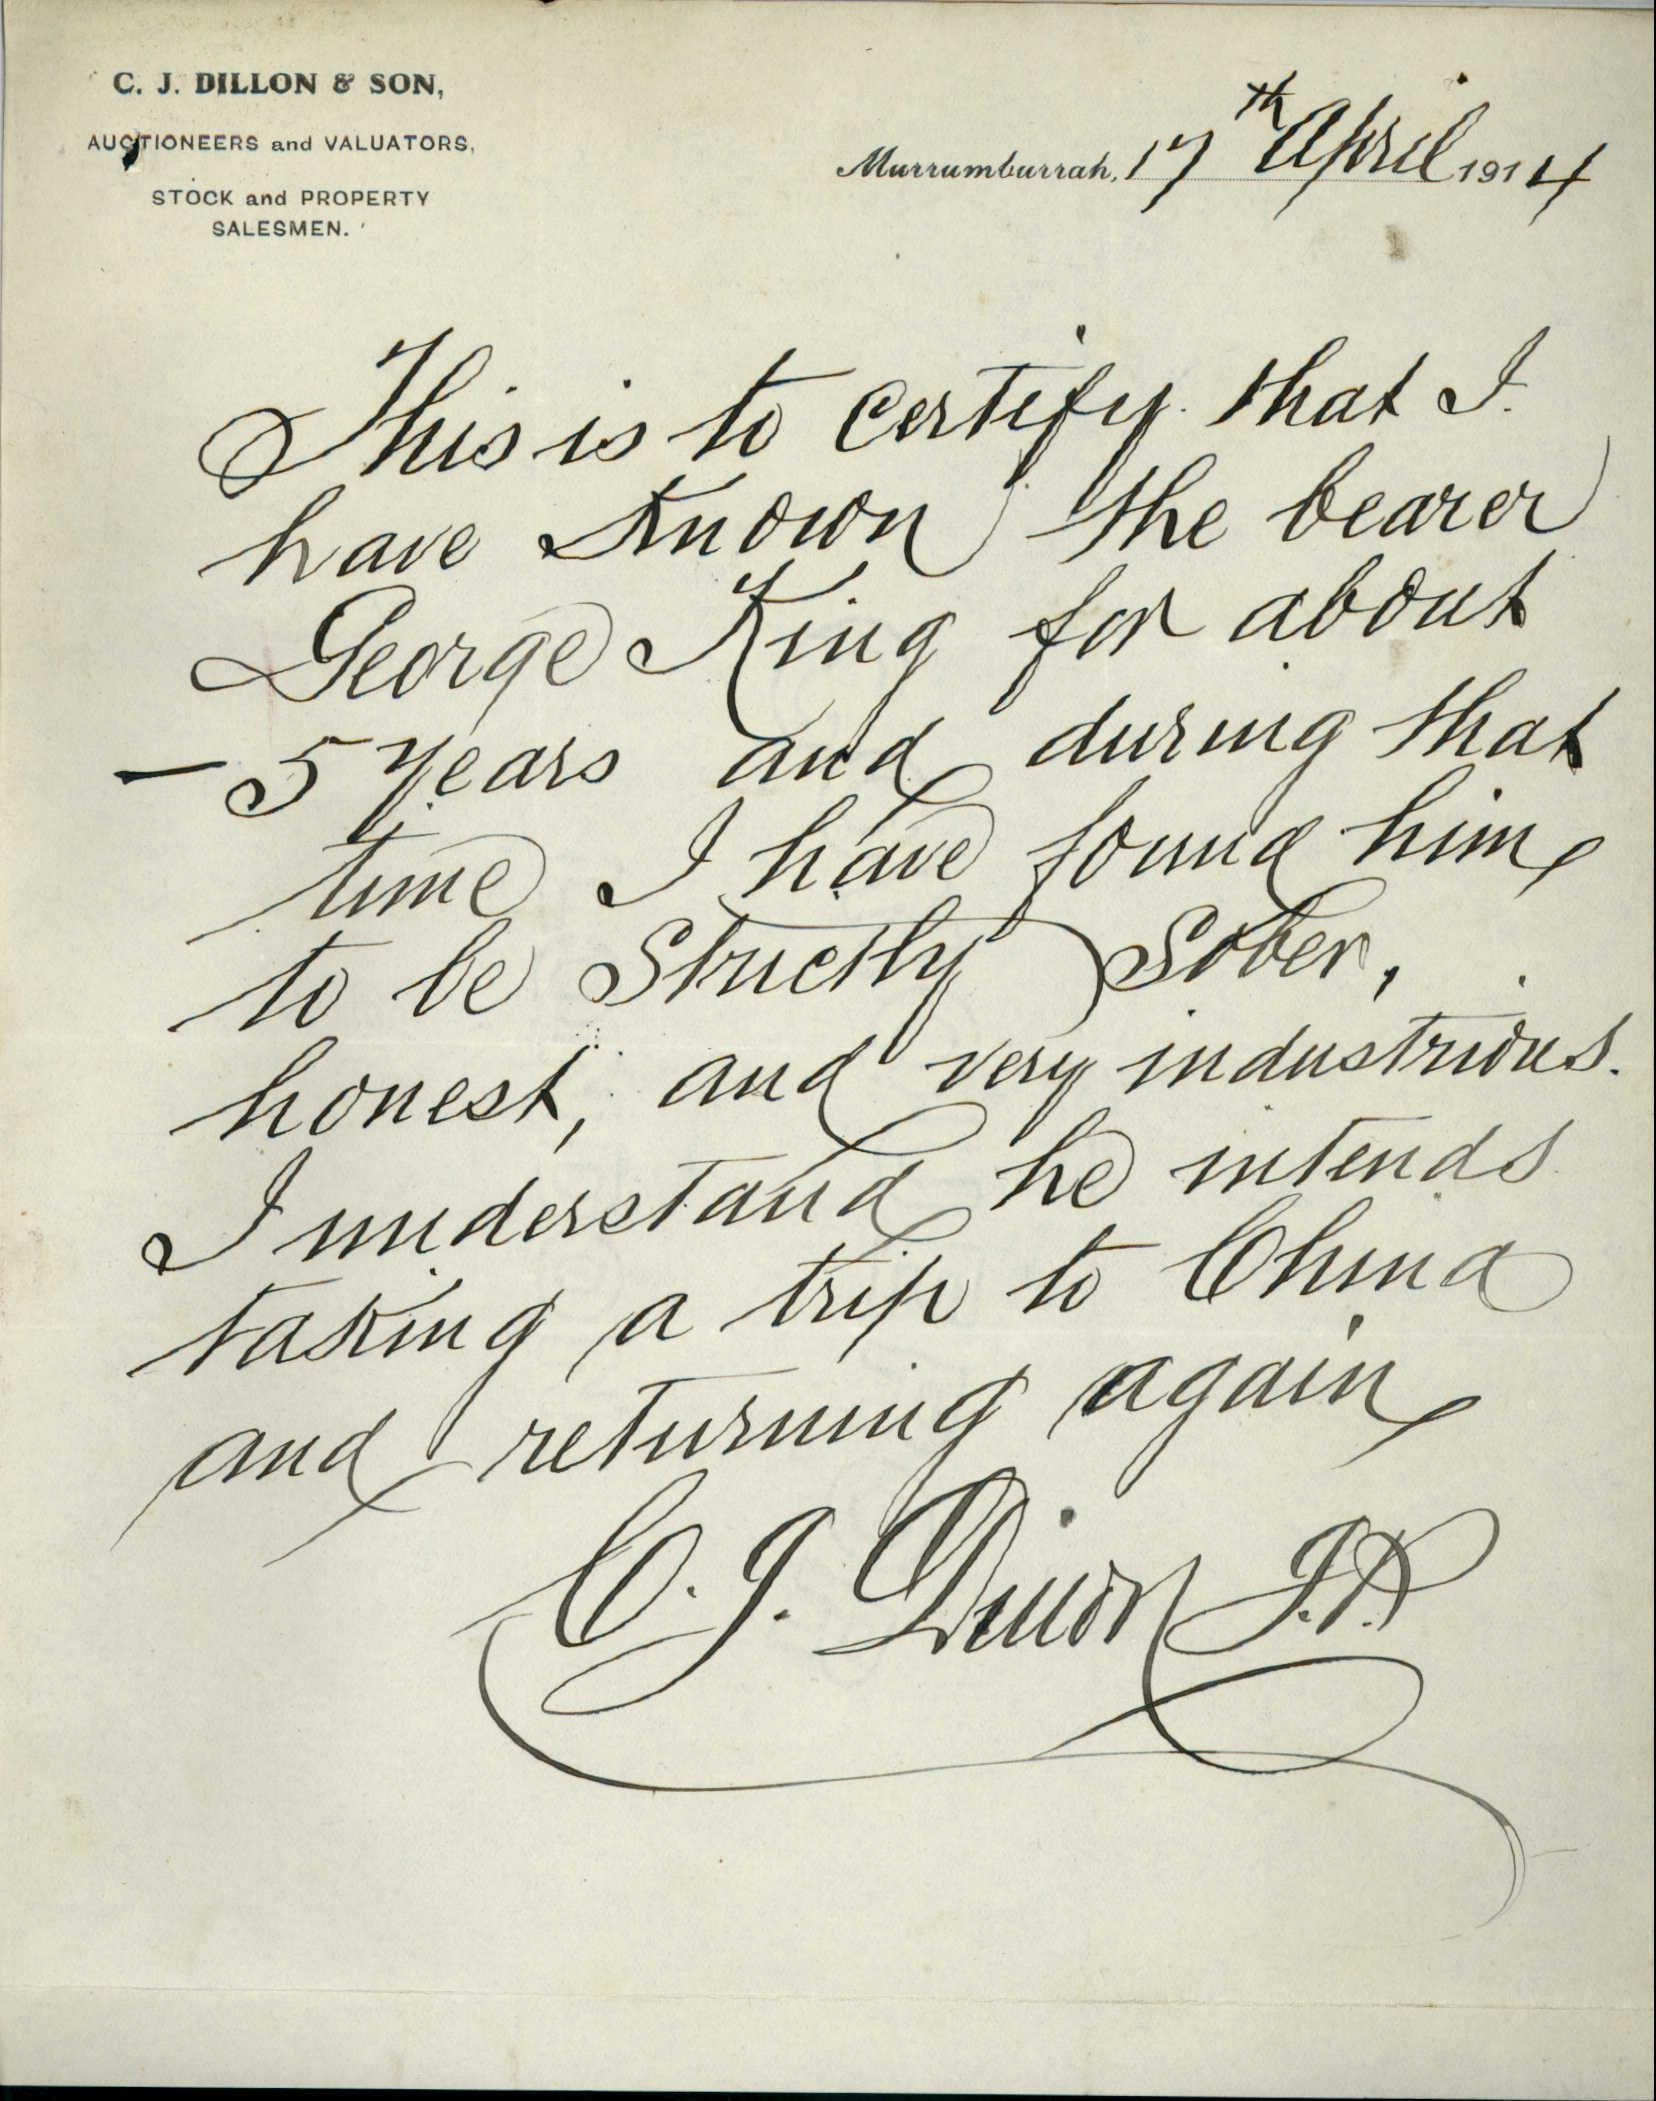 C. J. DILLON & SON,
AUCTIONEERS and VALUATORS,
STOCK and PROPERTY
SALESMEN.
Murrumburrah, 17th April 1914
This is to Certify that I
have Known the bearer
George King for about
– 5 years and during that
time I have found him
to be Strictly Sober,
honest, and very industrious.
I understand he intends
taking a trip to China
and returning again
C. J. Dillon J.P.